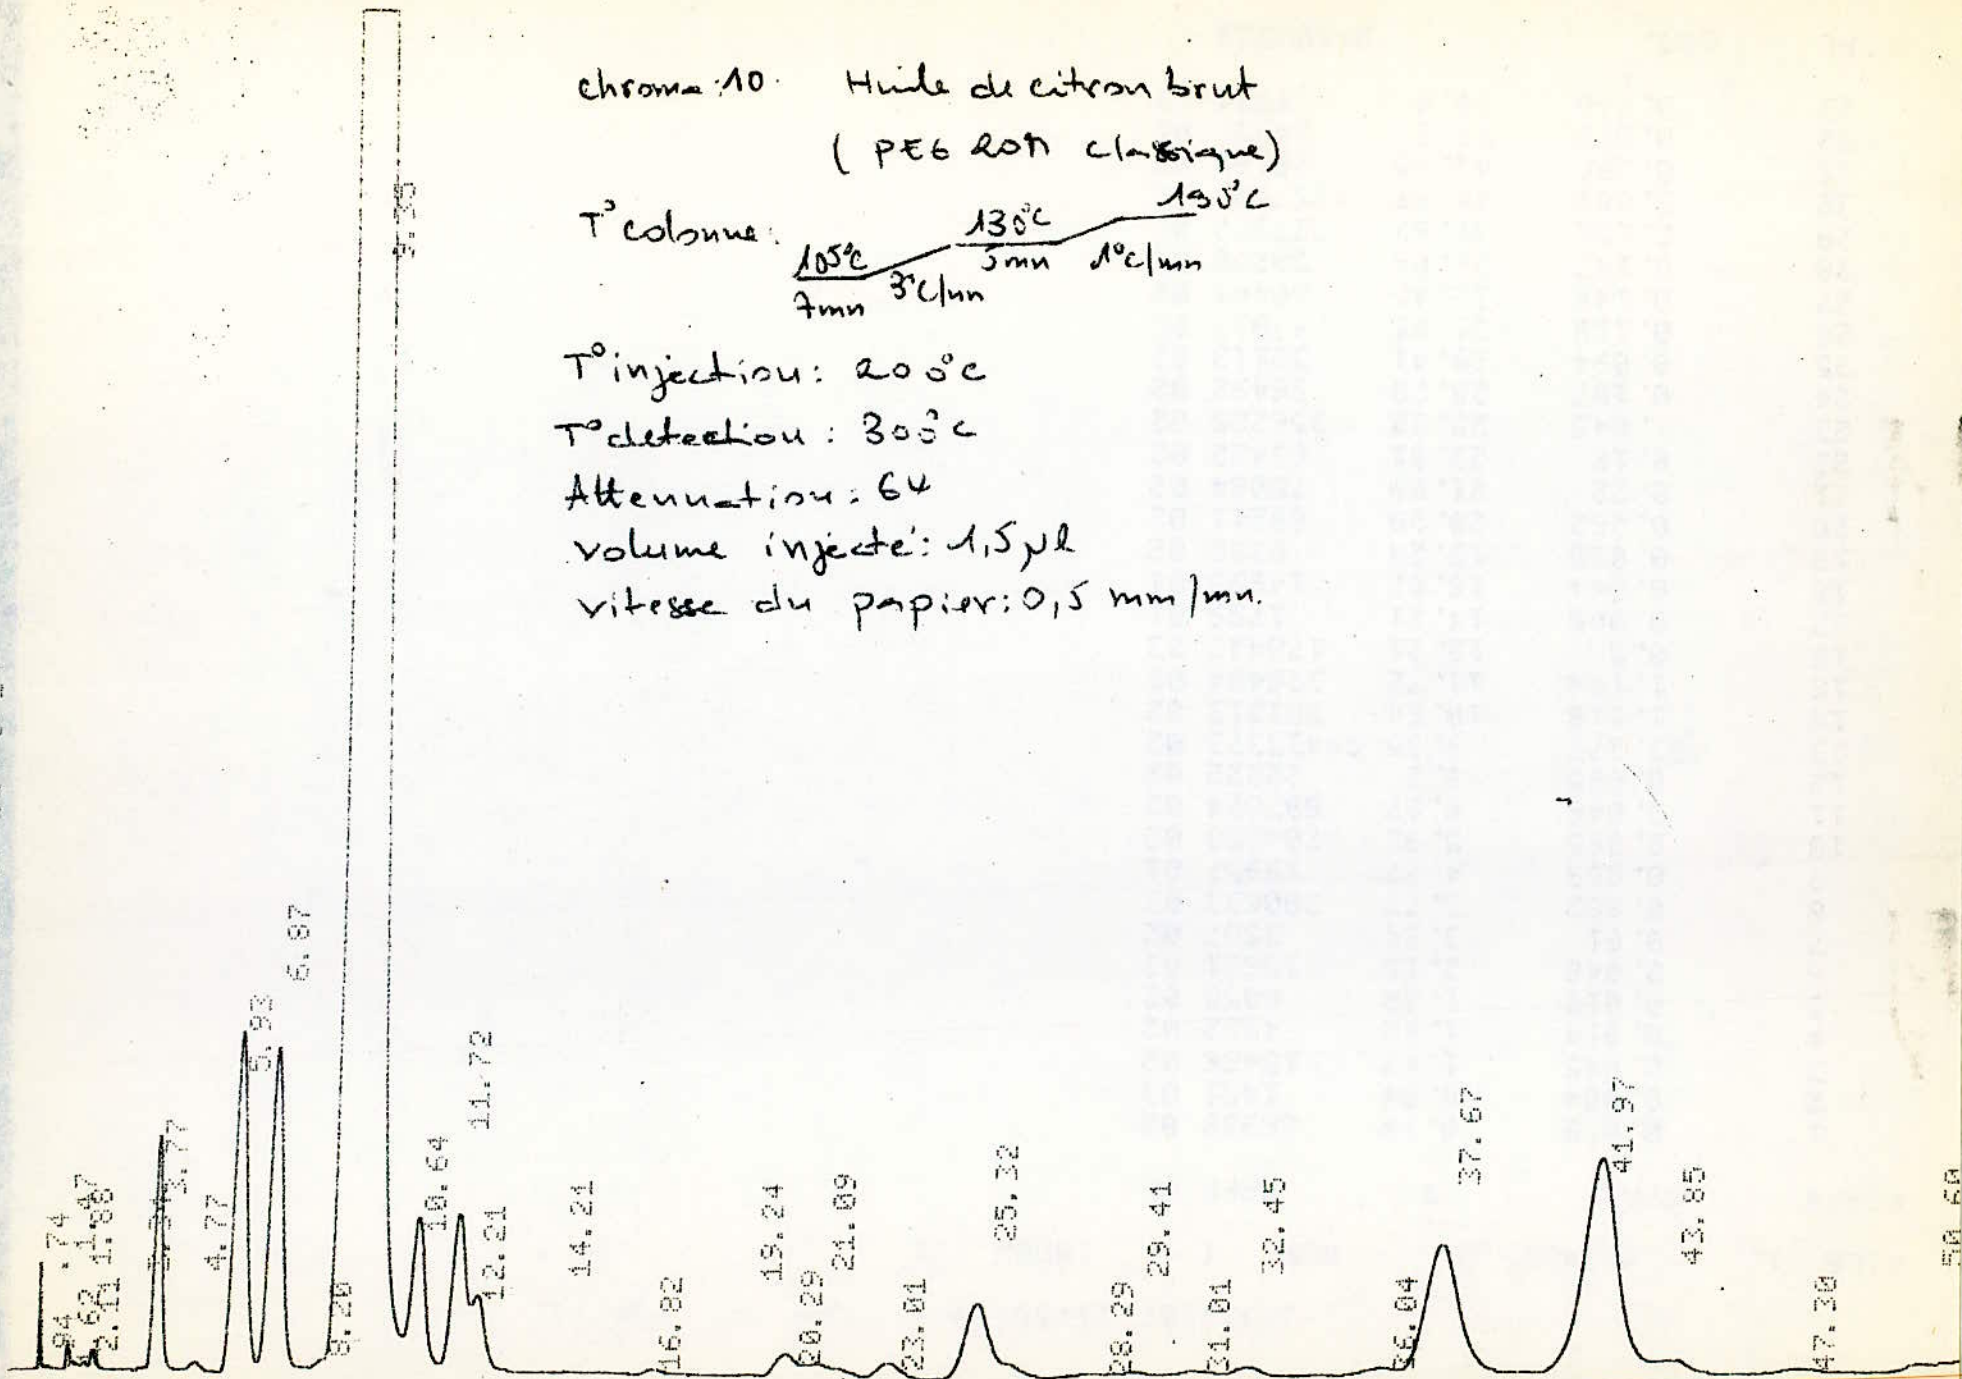 chroma:10. Huile de citron brut
( PEG 20M classique)
T° colonne:
105°C 130°C 190°C
7mn 3°C/mn 5mn 1°C/mn
T° injection: 200°C
T° detection: 300°C
Attenuation: 64
volume injecté: 1,5 µl
vitesse du papier: 0,5 mm/mn.
.74
.94
1.47
1.62
1.88
2.11
3.77
4.77
5.93
6.87
8.20
9.35
10.64
11.72
12.21
14.21
16.82
19.24
20.29
21.09
23.01
25.32
28.29
29.41
31.01
32.45
36.04
37.67
41.97
43.85
47.30
50.60